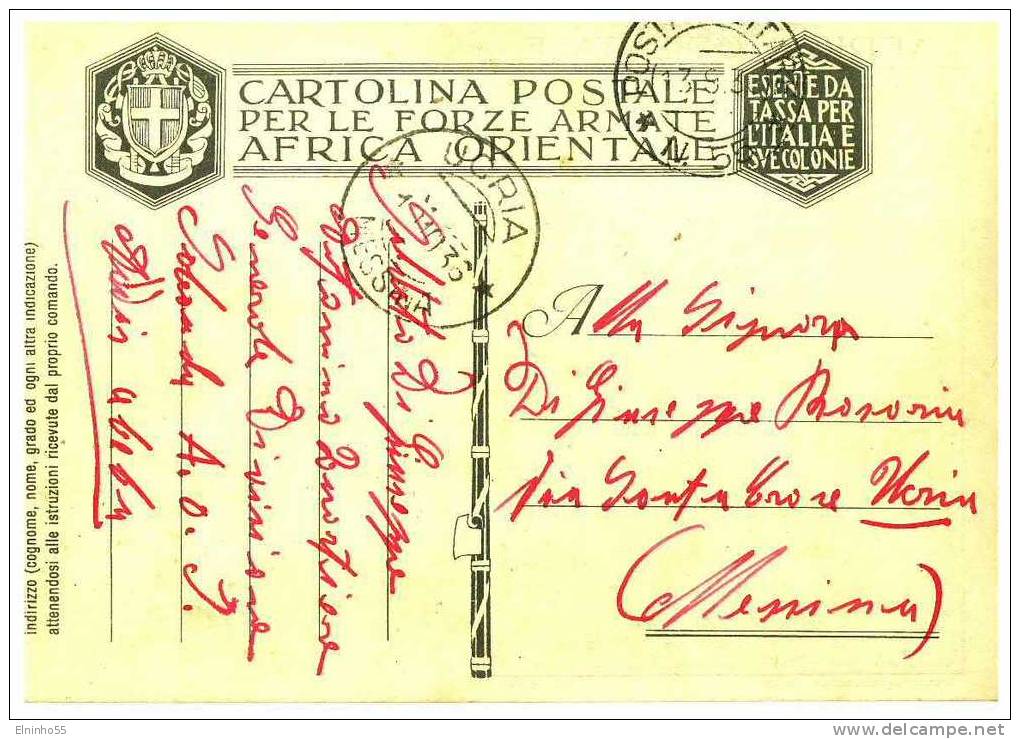 CARTOLINA POSTALE
PER LE FORZE ARMATE
AFRICA ORIENTALE
ESENTE DA
TASSA PER
L'ITALIA E
SVE COLONIE
UCRIA
MESSINA
indirizzo (cognome, nome, grado ed ogni altra indicazione)
attenendosi alle istruzioni ricevute dal proprio comando.
Di Giuseppe
Divisione
A. O. I.
abeba
Alla Signora
Di Giuseppe Rosaria
Via Santa Croce Ucria
(Messina)
Elninho55
www.delcampe.net